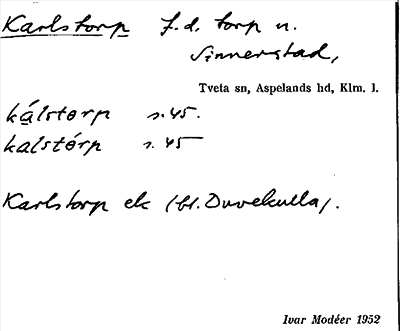 Karlstorp f.d. torp u.
Sinnerstad,
Tveta sn, Aspelands hd, Klm. l.
kálstorp s. 45.
kalstórp s. 45
Karlstorp ek (bl. Duvekulla).
Ivar Modéer 1952